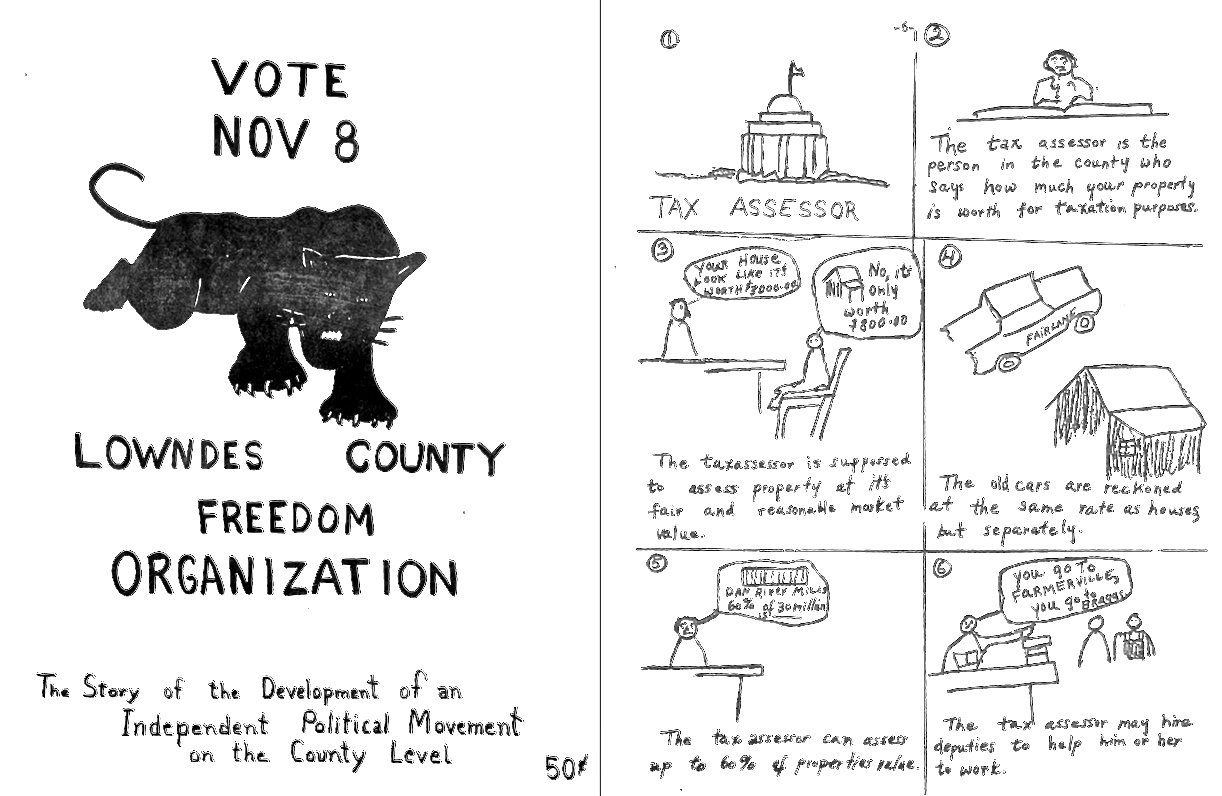 VOTE
NOV 8
LOWNDES COUNTY
FREEDOM
ORGANIZATION
The Story of the Development of an
Independent Political Movement
on the County Level
50¢
-6-
1
TAX ASSESSOR
2
The tax assessor is the
person in the county who
says how much your property
is worth for taxation purposes.
3
YOUR HOUSE
LOOK LIKE ITS
WORTH $3000.00
No, its
only
worth
$800.00
The taxassessor is suppossed
to assess property at it's
fair and reasonable market
value.
4
FAIRLANE
The old cars are reckoned
at the same rate as houses
but separately.
5
DAN RIVER MILLS
60% of 30 million
is!
The tax assessor can assess
up to 60% of properties value.
6
you go To
FARMERVILLE,
you go to
BRAGGS
The tax assessor may hire
deputies to help him or her
to work.